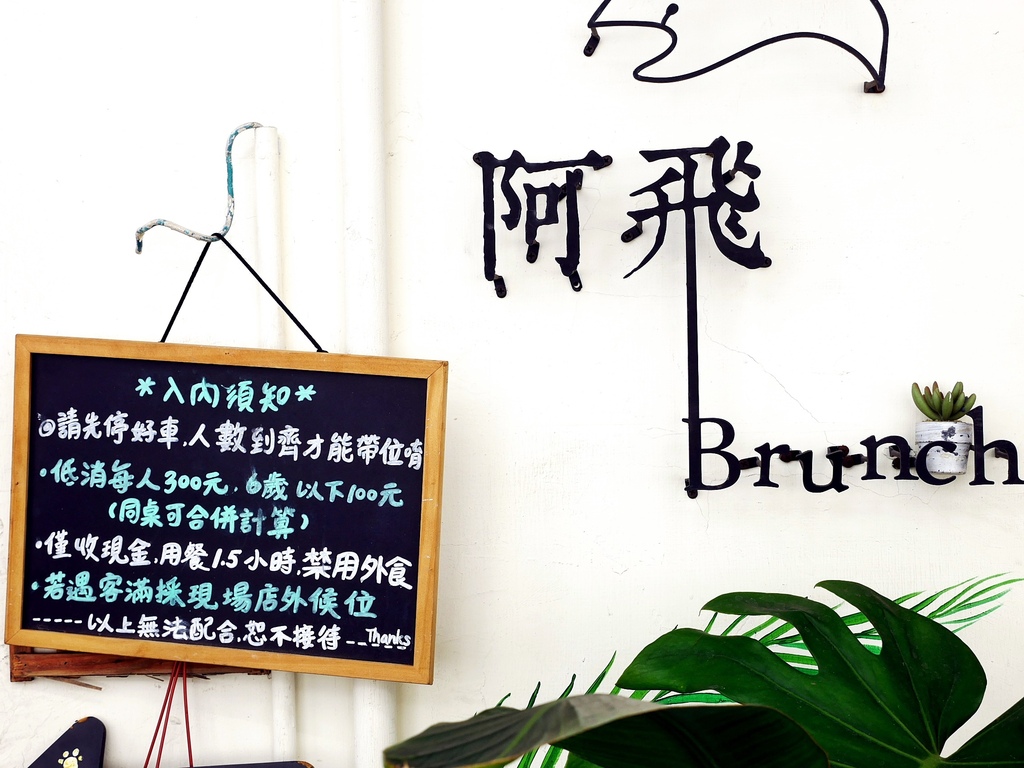 阿飛
Brunch
*入內須知*
◎請先停好車,人數到齊才能帶位唷
·低消每人300元,6歲以下100元
(同桌可合併計算)
·僅收現金,用餐1.5小時,禁用外食
·若遇客滿採現場店外候位
-----以上無法配合,恕不接待-----Thanks